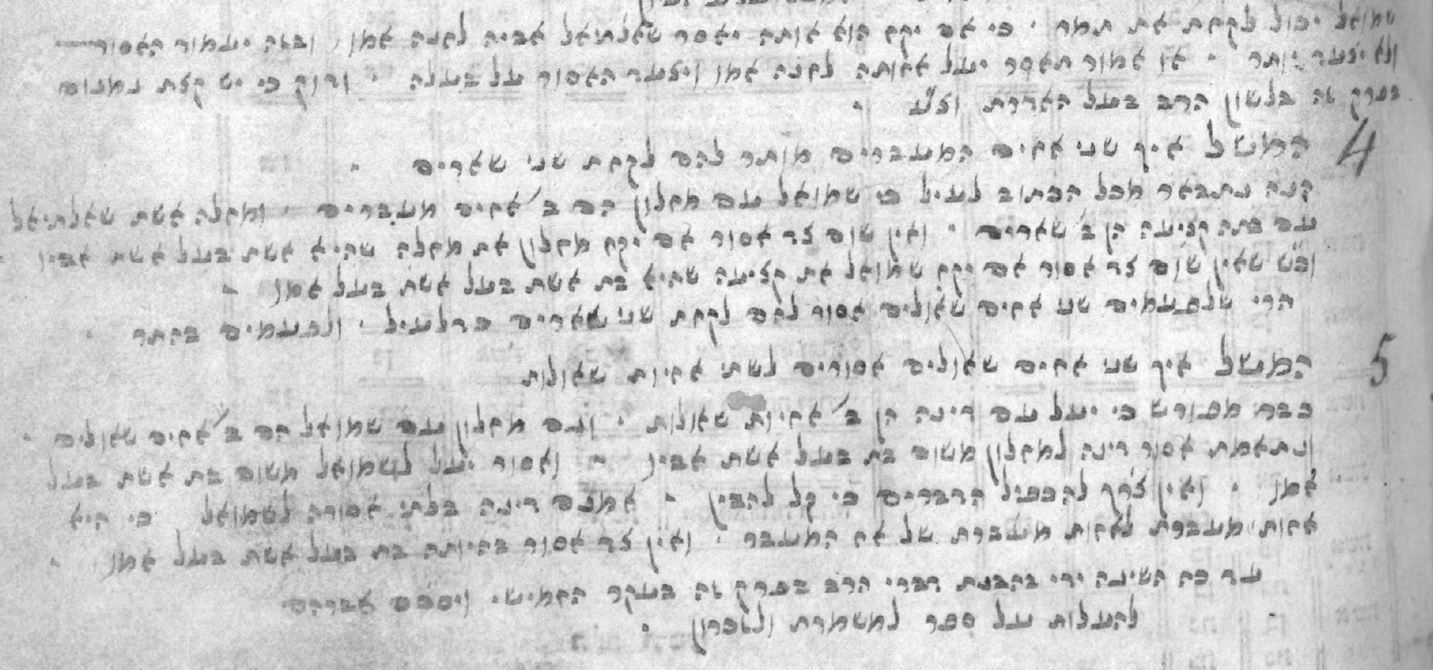 שמואל יכול לקחת את תמר · כי אם יקח הוא אותה יאסר שאלתיאל אביה לחנה אמו · ובזה יעמוד האסור
ולא יצער יותר · או אמור תאסר יעל אחותה לחנה אמו ויצער האסור על בעלה · ודוק כי יש קצת גמגום
בפרק זה בלשון הרב בעל האדרת וצ״ע ·
4 המשל איך שני אחים המעברים מותר להם לקחת שני שארים ·
הנה נתבאר מכל הכתוב לעיל כי שמואל עם מחלון הם ב׳ אחים מעברים · ומחלה אשת שאלתיאל
עם בתה קציעה הן ב׳ שארים · ואין שום צד אסור אם יקח מחלון את מחלה שהיא אשת בעל אשת אביו ·
וכ״ש שאין שום צד אסור אם יקח שמואל את קציעה שהיא בת אשת בעל אשת בעל אמו ·
הרי שלפעמים שני אחים שאולים אסור להם לקחת שני שארים כדלעיל · ולפעמים בהתר ·
5 המשל איך שני אחים שאולים אסורים לשתי אחיות שאולות
כבר מפורש כי יעל עם דינה הן ב׳ אחיות שאולות · וגם מחלון עם שמואל הם ב׳ אחים שאולים ·
ונתאמת אסור דינה למחלון משום בת בעל אשת אביו · ואסור יעל לשמואל משום בת אשת בעל
אמו · ואין צרך להכפיל הדברים כי קל להבין · אמנם דינה בלתי אסורה לשמואל כי היא
אחות מעברת לאחות מעברת של אח המעבר · ואין צד אסור בהיותה בת בעל אשת בעל אמו ·
עד כה השיגה ידי בהבנת דברי הרב בפרק זה בעקר החמישי ויספתם אברהם
להעלות על ספר למשמרת ולזכרון ·